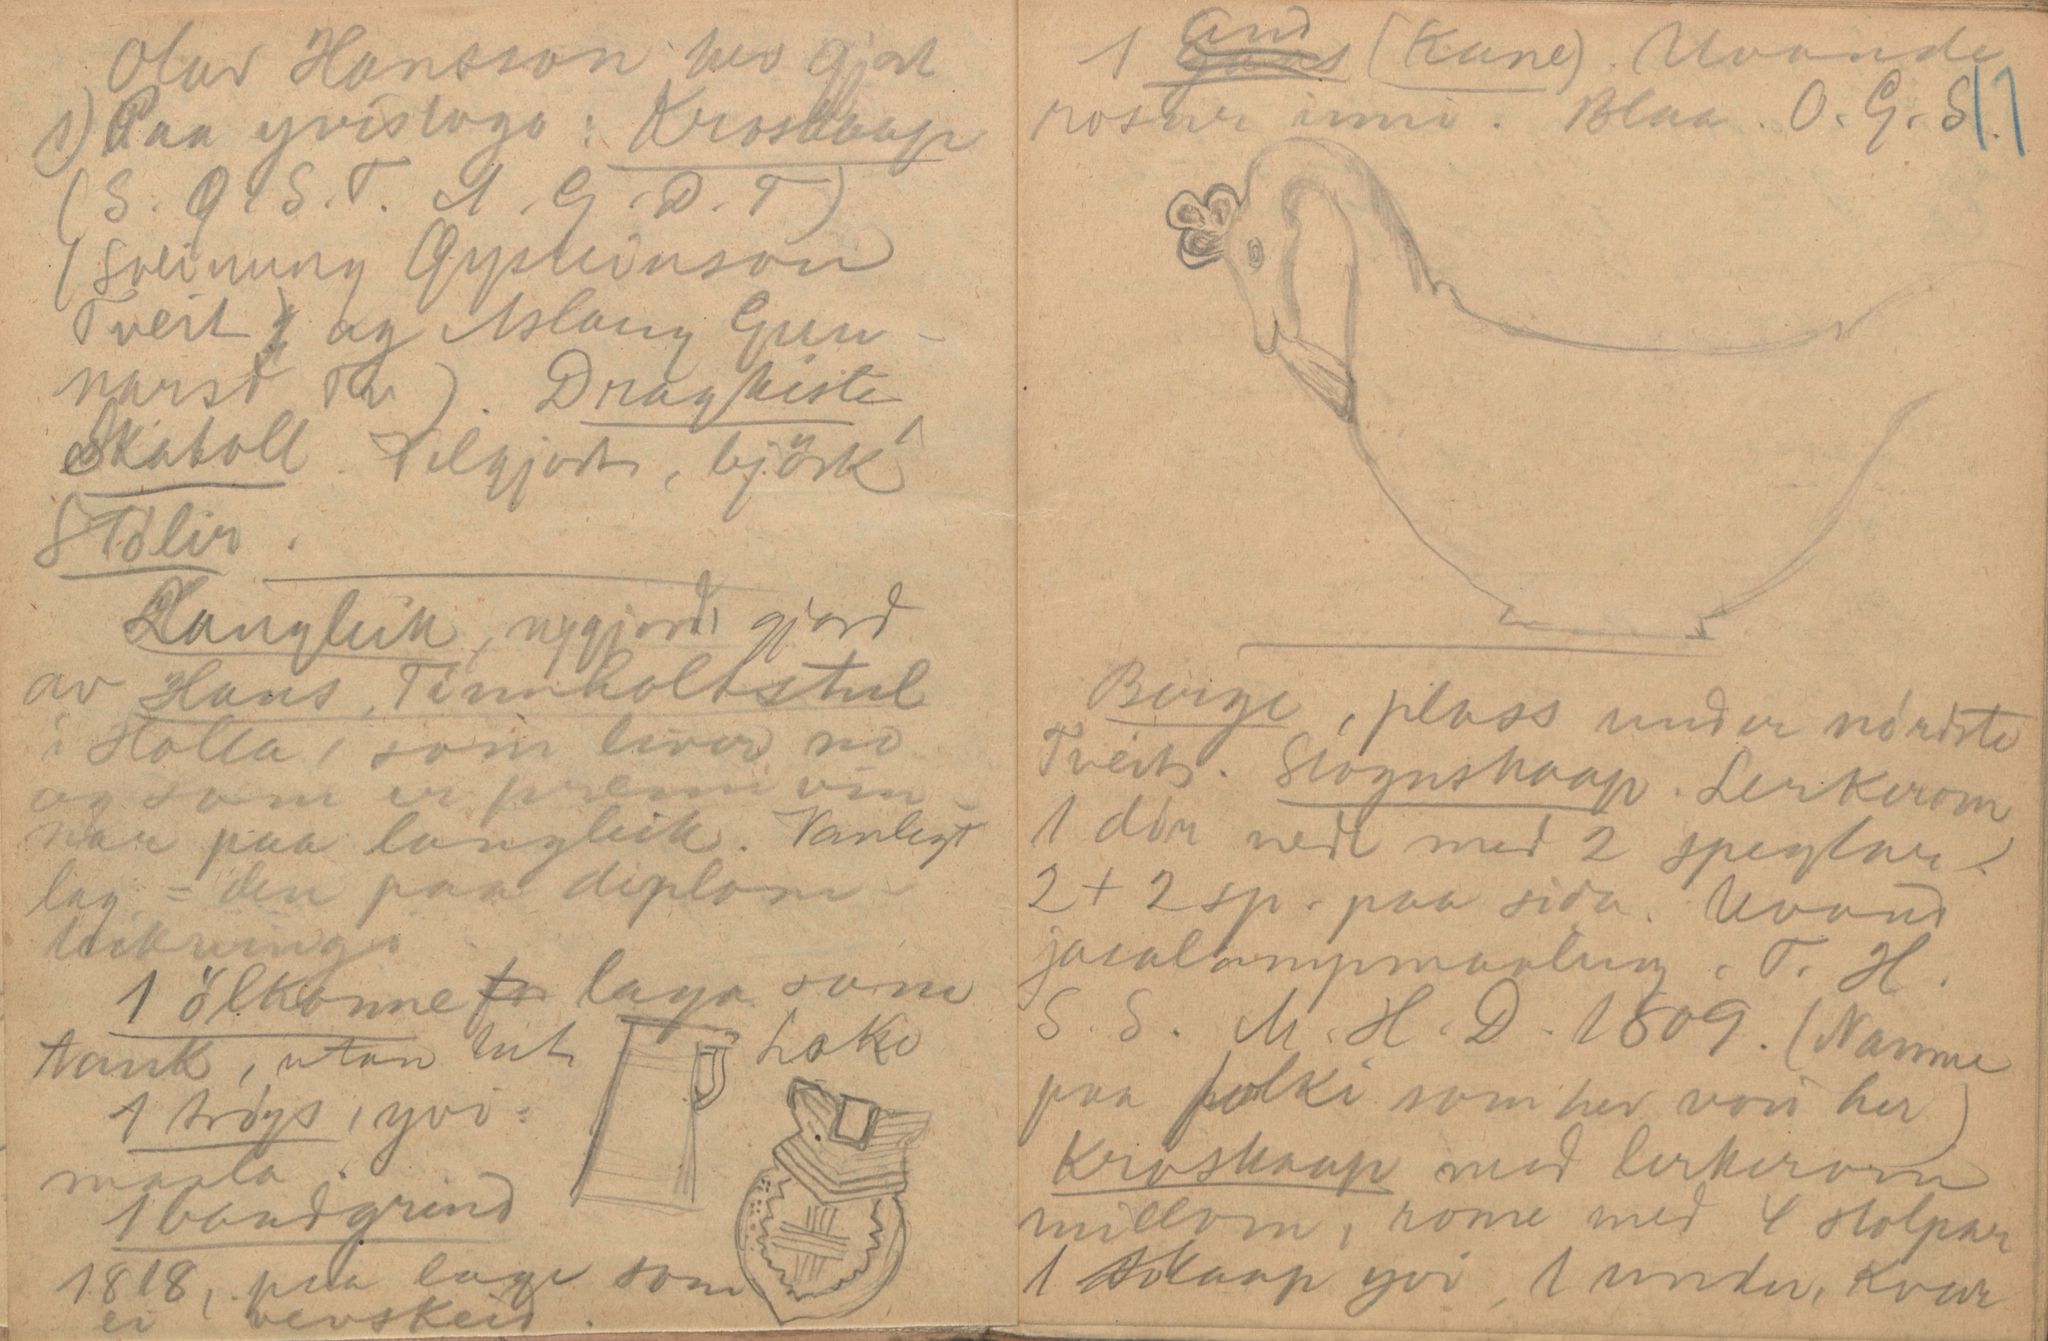 Olav Hansson hev gjort
1) Paa yvistogo: Kroskaap
(S. Ø. S. T. A. G. D. T)
(Sveinung Øysteinson
Tveit og Aslaug Gun-
narsd Tv). Dragkiste
Skatoll. Velgjort, björk
Stólir.
Langleik, nygjord gjord
av Hans Tinnholtstul
i Holla, som liver no
og som er premivin-
nar paa langleik. Vanlegt
lag = den paa diplom-
1 ölkanne laga som
tank, utan tut. Loke
1 trøys, yvi-
maala.
1 bandgrind
1818, paa lage som
ei vevskeid.
1 And (Kane). Uvande
rosur inni. Blaa. O. G. S. 17
Berge, plass under nørdste
Tveit. Stognskaap. Lerkerom
1 dör nedi med 2 speglar.
2 + 2 sp. paa sida. Uvand
T. H.
S. S. M. H. D. 1809. (Namne
paa folki som her vori her)
Kroskaap med lerkerom
millom, rome med 4 stolpar
1 skaap yvi, 1 under, kvar